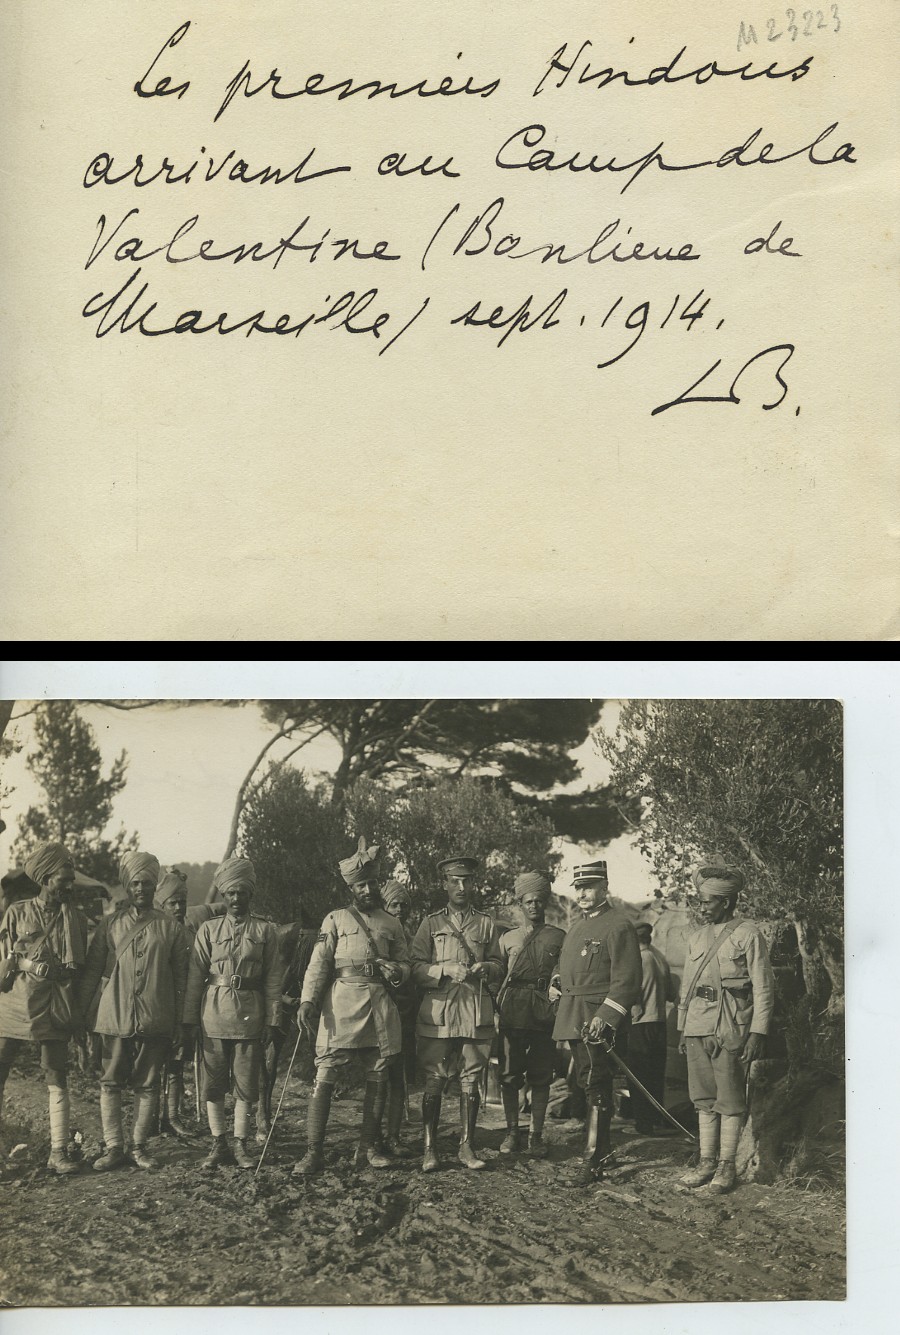 M23223
Les premiers Hindous
arrivant au Camp de la
Valentine (Banlieue de
Marseille) sept. 1914.
LB.